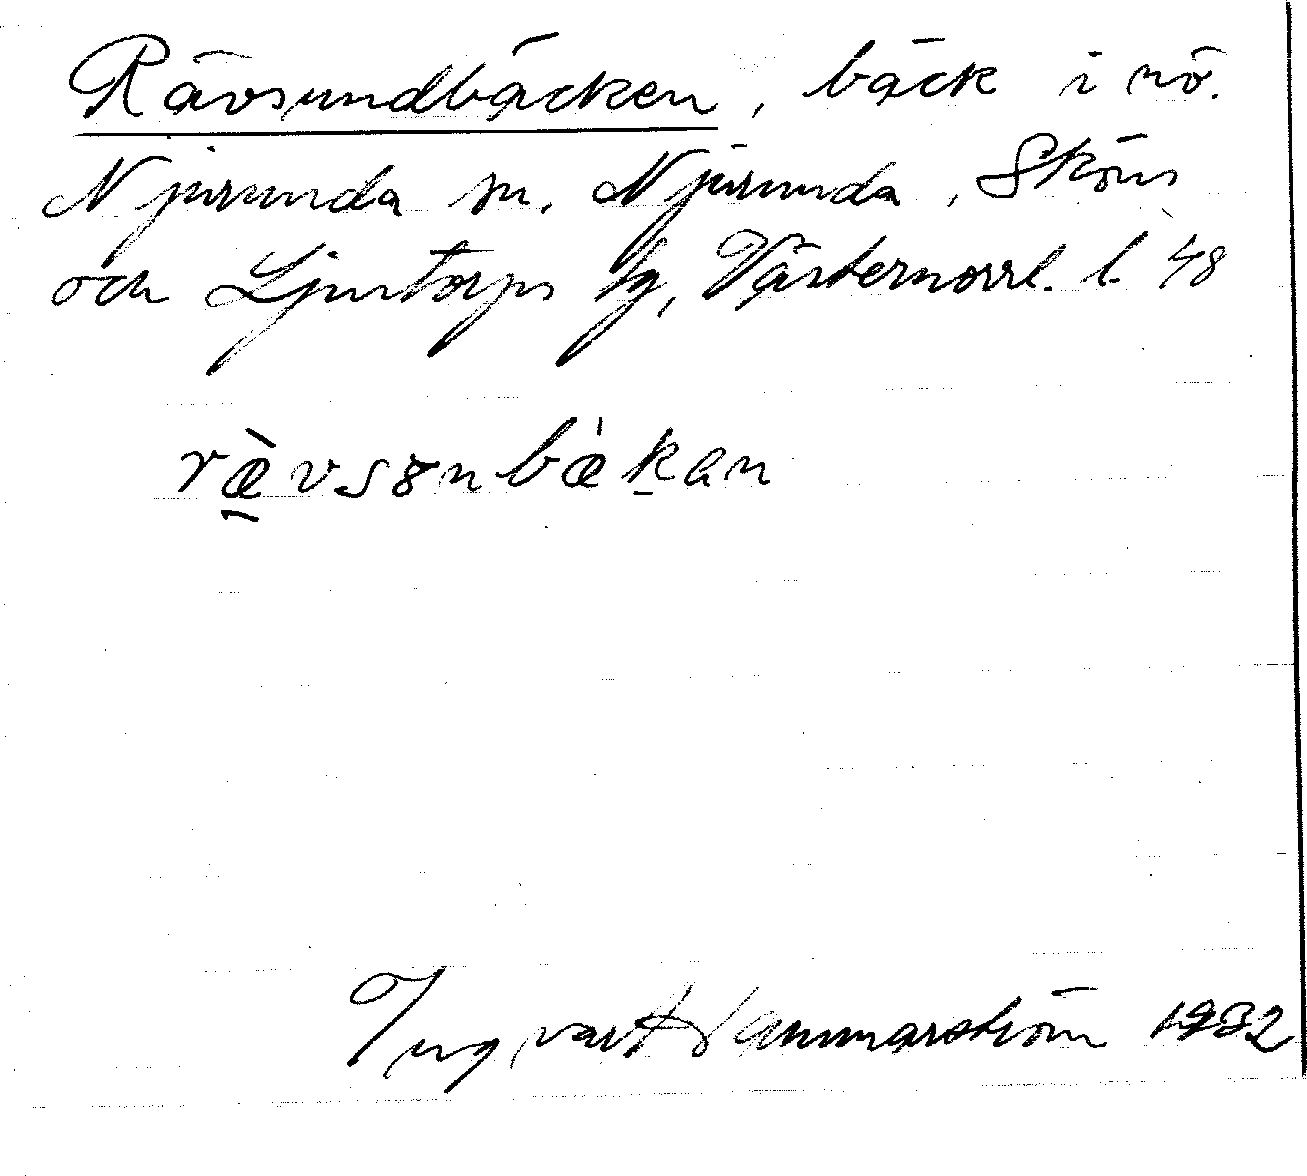 Rävsundbäcken, bäck i nö.
Njurunda sn. Njurunda, Sköns
och Ljustorps tg, Västernorrl. l. 48
ræ̀vsɤnbæ̀k̠an
Ingvart Hammarström 1932